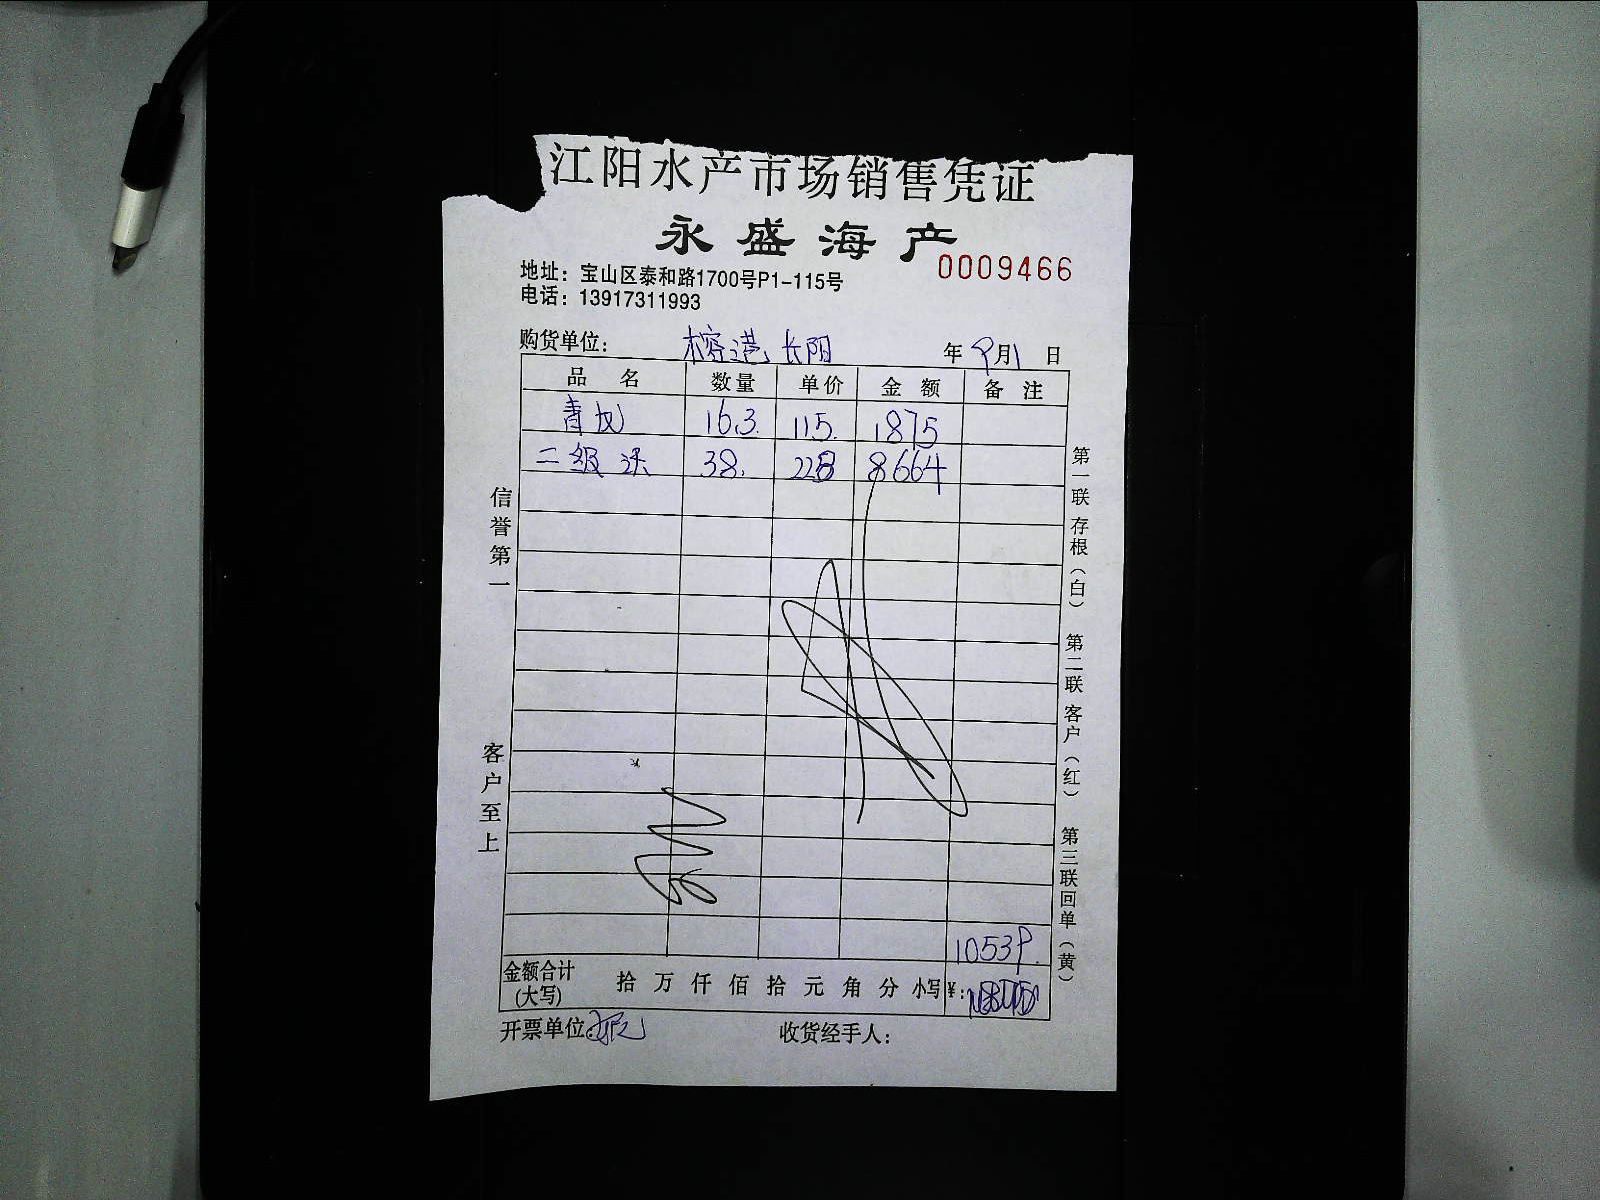 江阳水产市场销售凭证
永盛海产
0009466
地址：宝山区泰和路1700号P1-115号
电话：13917311993
购货单位： 榕港 长阳 年 9月1 日
品 名 数量 单价 金 额 备 注
青龙 16.3 115. 1875
二级 38. 228 8664
信誉第一
客户至上
第一联 存根（白） 第二联 客户（红） 第三联 回单（黄）
10539.
金额合计(大写) 拾 万 仟 佰 拾 元 角 分 小写 ¥：
开票单位：
收货经手人：